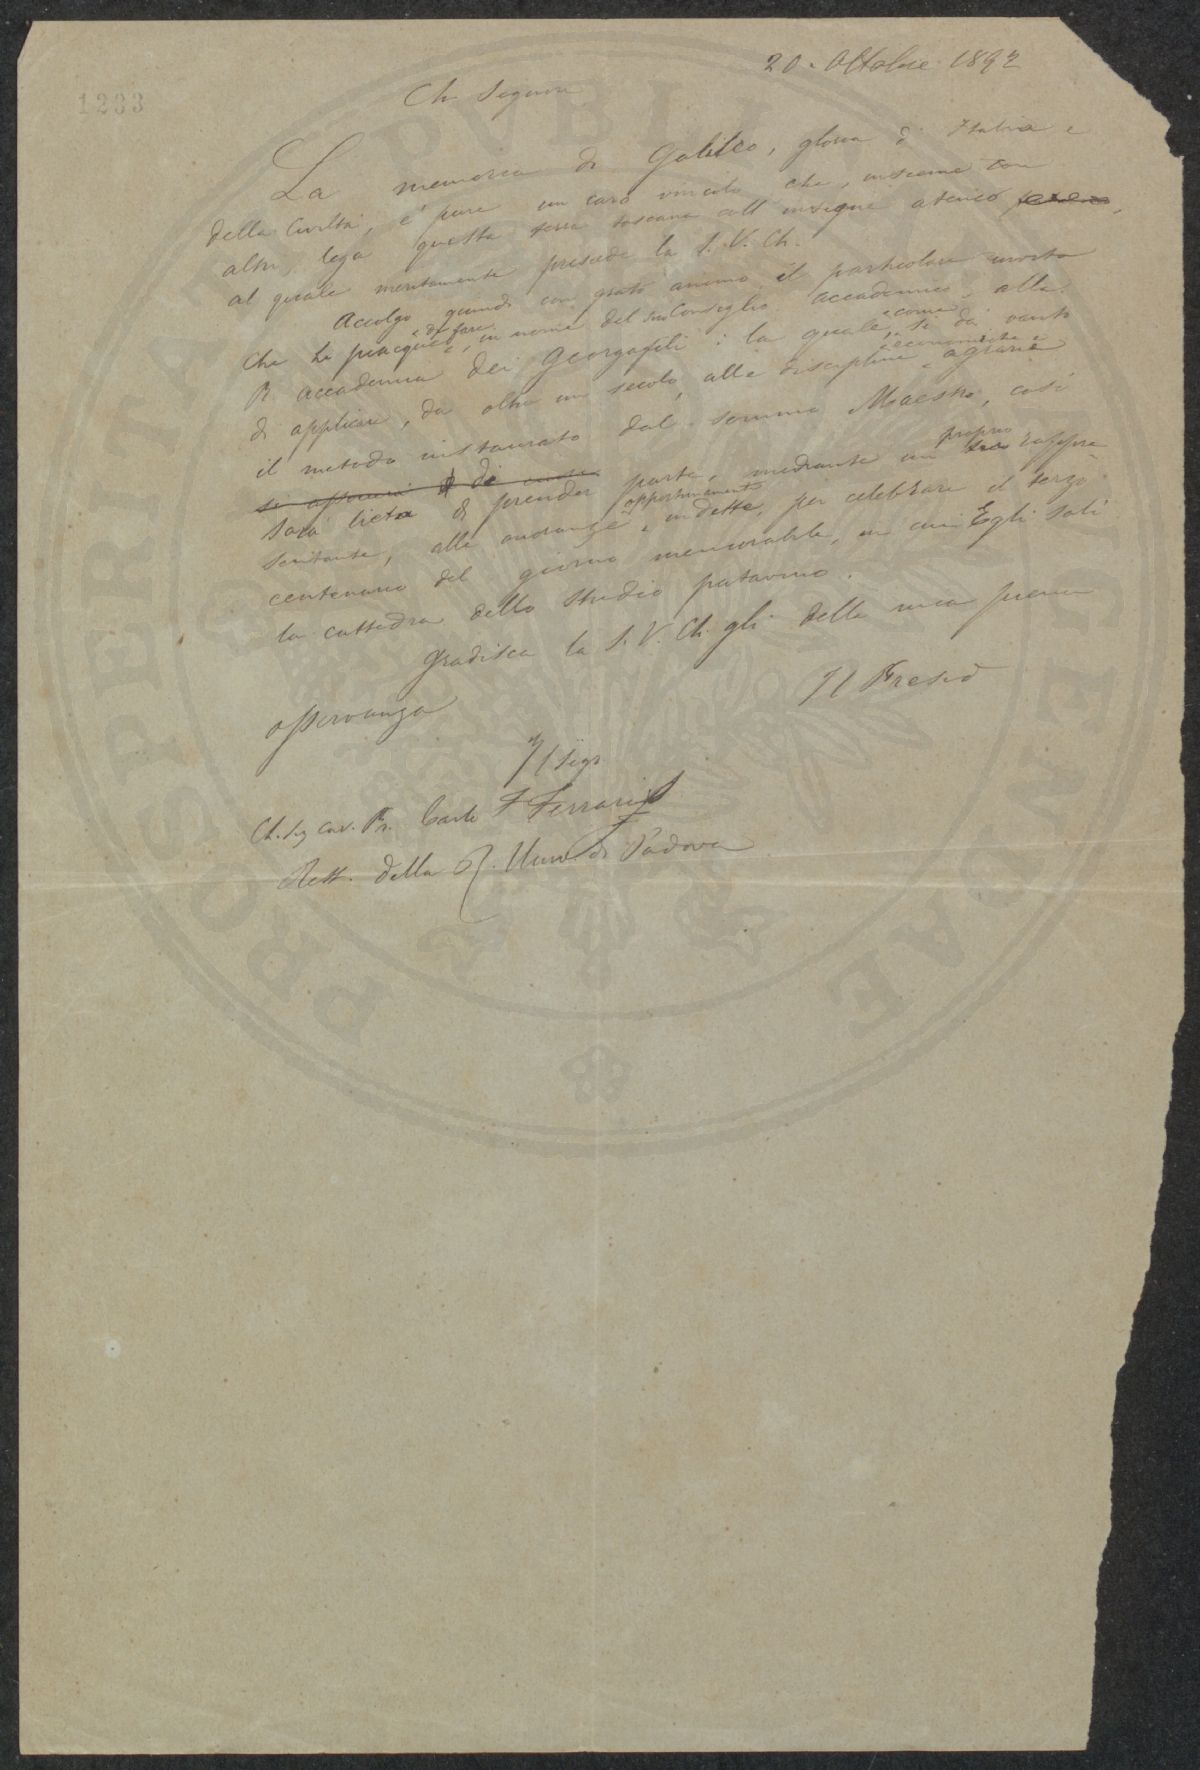 1233
20. Ottobre 1892
Ch. Signore
La memoria di Galileo, gloria d'Italia e
della Civiltà, è pure un caro vincolo che, insieme con
altri, lega questa terra toscana coll'insigne ateneo
al quale meritamente presiede la S. V. Ch.
Accolgo quindi con grato animo il particolare invito
che Le piacque di fare, in nome del suo Consiglio accademico, alla
R. accademia dei Georgofili: la quale, come si dà vanto
di applicare, da oltre un secolo, alle discipline economiche e agrarie
il metodo instaurato dal sommo Maestro, così
sarà lieta di prender parte, mediante un proprio rappre=
sentante, alle onoranze opportunamente indette, per celebrare il terzo
centenario del giorno memorabile, in cui Egli salì
la cattedra dello Studio patavino.
Gradisca la S. V. Ch. gli della mia piena
osservanza
Il Presid
Il Sigr
Ch. Sig cav. Pr. Carlo F Ferraris
Rett. della R. Univ di Padova
PROSPERITATI PVBLICAE AVGENDAE